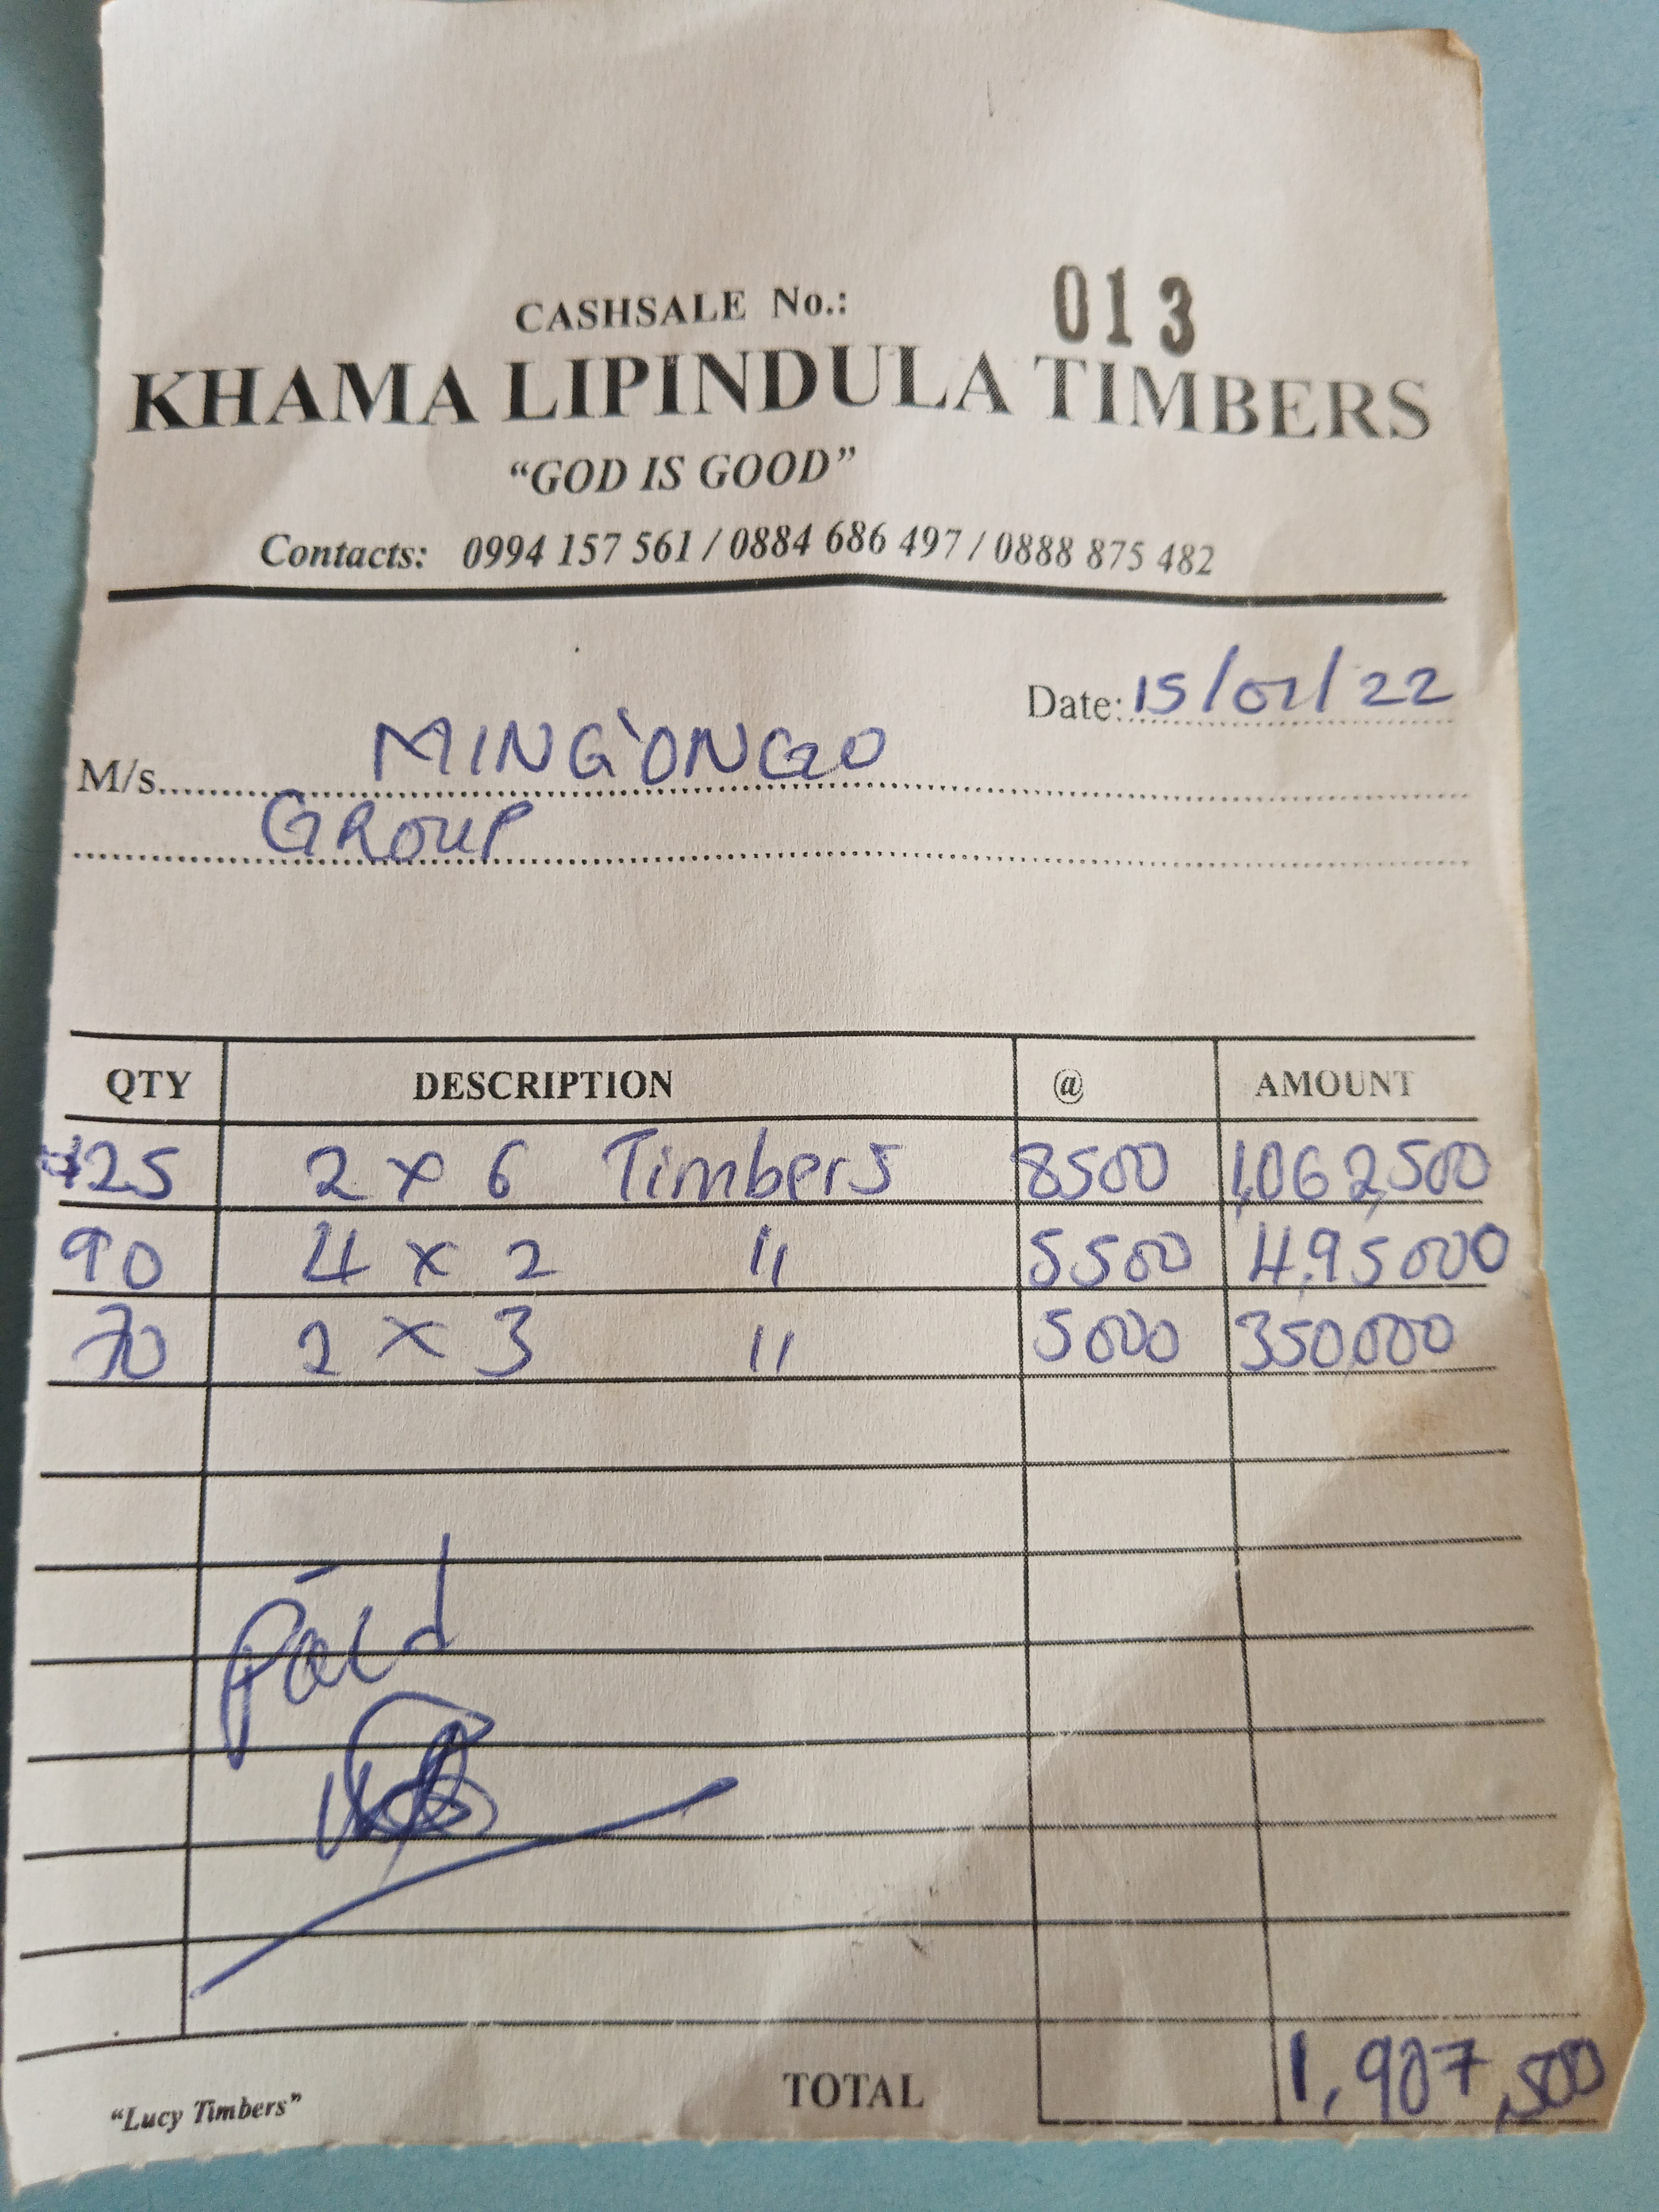 CASHSALE No.: 013
KHAMA LIPINDULA TIMBERS
“GOD IS GOOD”
Contacts: 0994 157 561 / 0884 686 497 / 0888 875 482
Date: 15/02/22
M/s MING'ONGO
GROUP
QTY DESCRIPTION @ AMOUNT
125 2 x 6 Timbers 8500 1,062,500
90 4 x 2 " 5500 495000
70 2 x 3 " 5000 350,000
Paid
TOTAL 1,907,500
“Lucy Timbers”